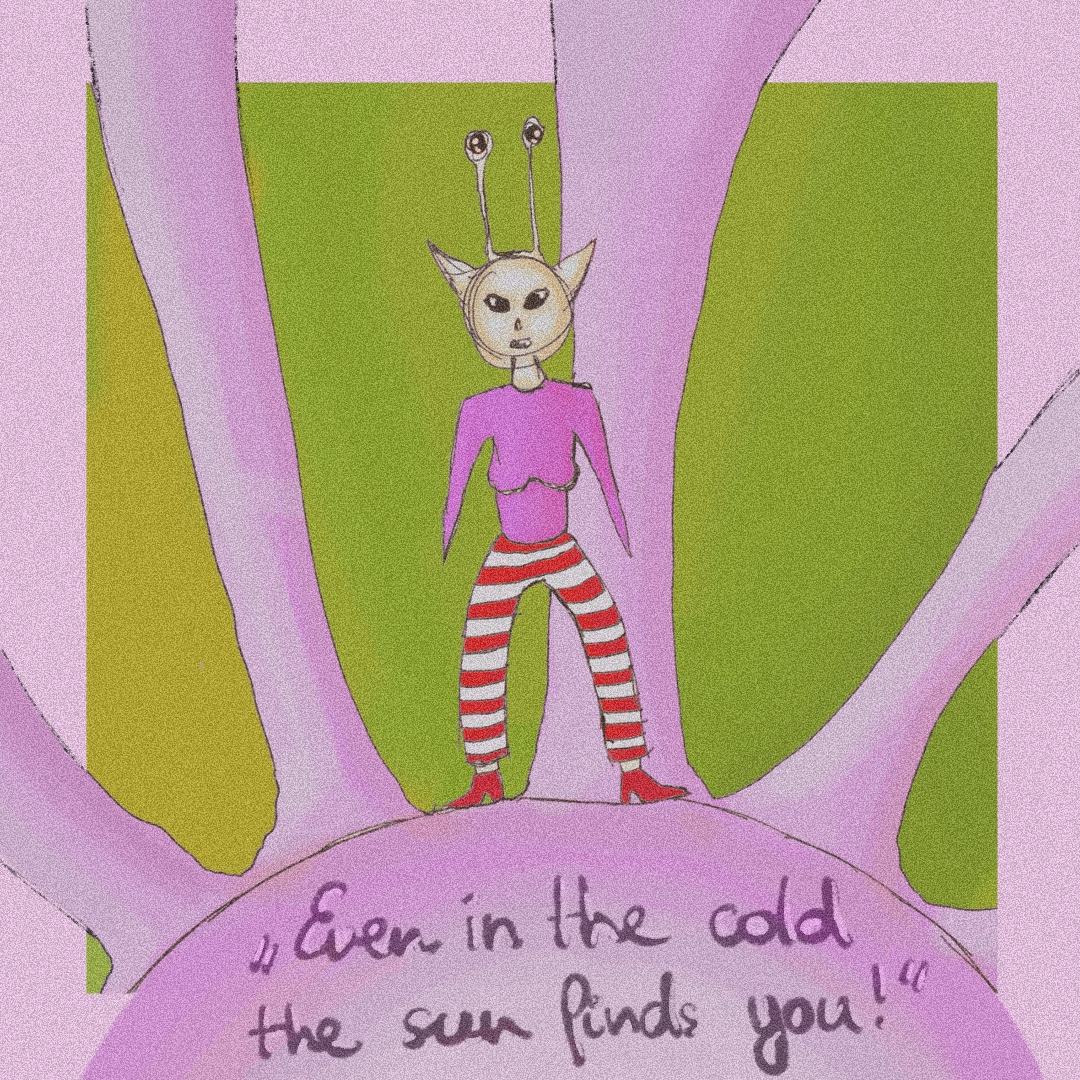 „Even in the cold
the sun finds you!“